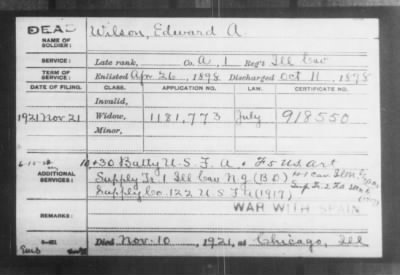 DEAD
NAME OF SOLDIER: Wilson, Edward A.
SERVICE: Late rank, Co. A, 1 Reg't Ill Cav
TERM OF SERVICE: Enlisted Apr. 26, 1898 Discharged Oct 11, 1898
DATE OF FILING. CLASS. APPLICATION NO. LAW. CERTIFICATE NO.
Invalid,
1921 Nov 21 Widow, 1181,773 July 918550
Minor,
ADDITIONAL SERVICES: 10 + 30 Batty U.S. F. A. + F 5 U.S. Art
Supply Tr. 1 Ill Cav N.G. (B.D.)
Supply Co. 122 U.S. F A (1917)
WAR WITH SPAIN
REMARKS:
Died Nov. 10, 1921, at Chicago, Ill